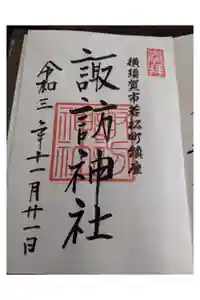 奉拝
横須賀市若松町鎮座
諏訪神社
令和三年十一月廿一日